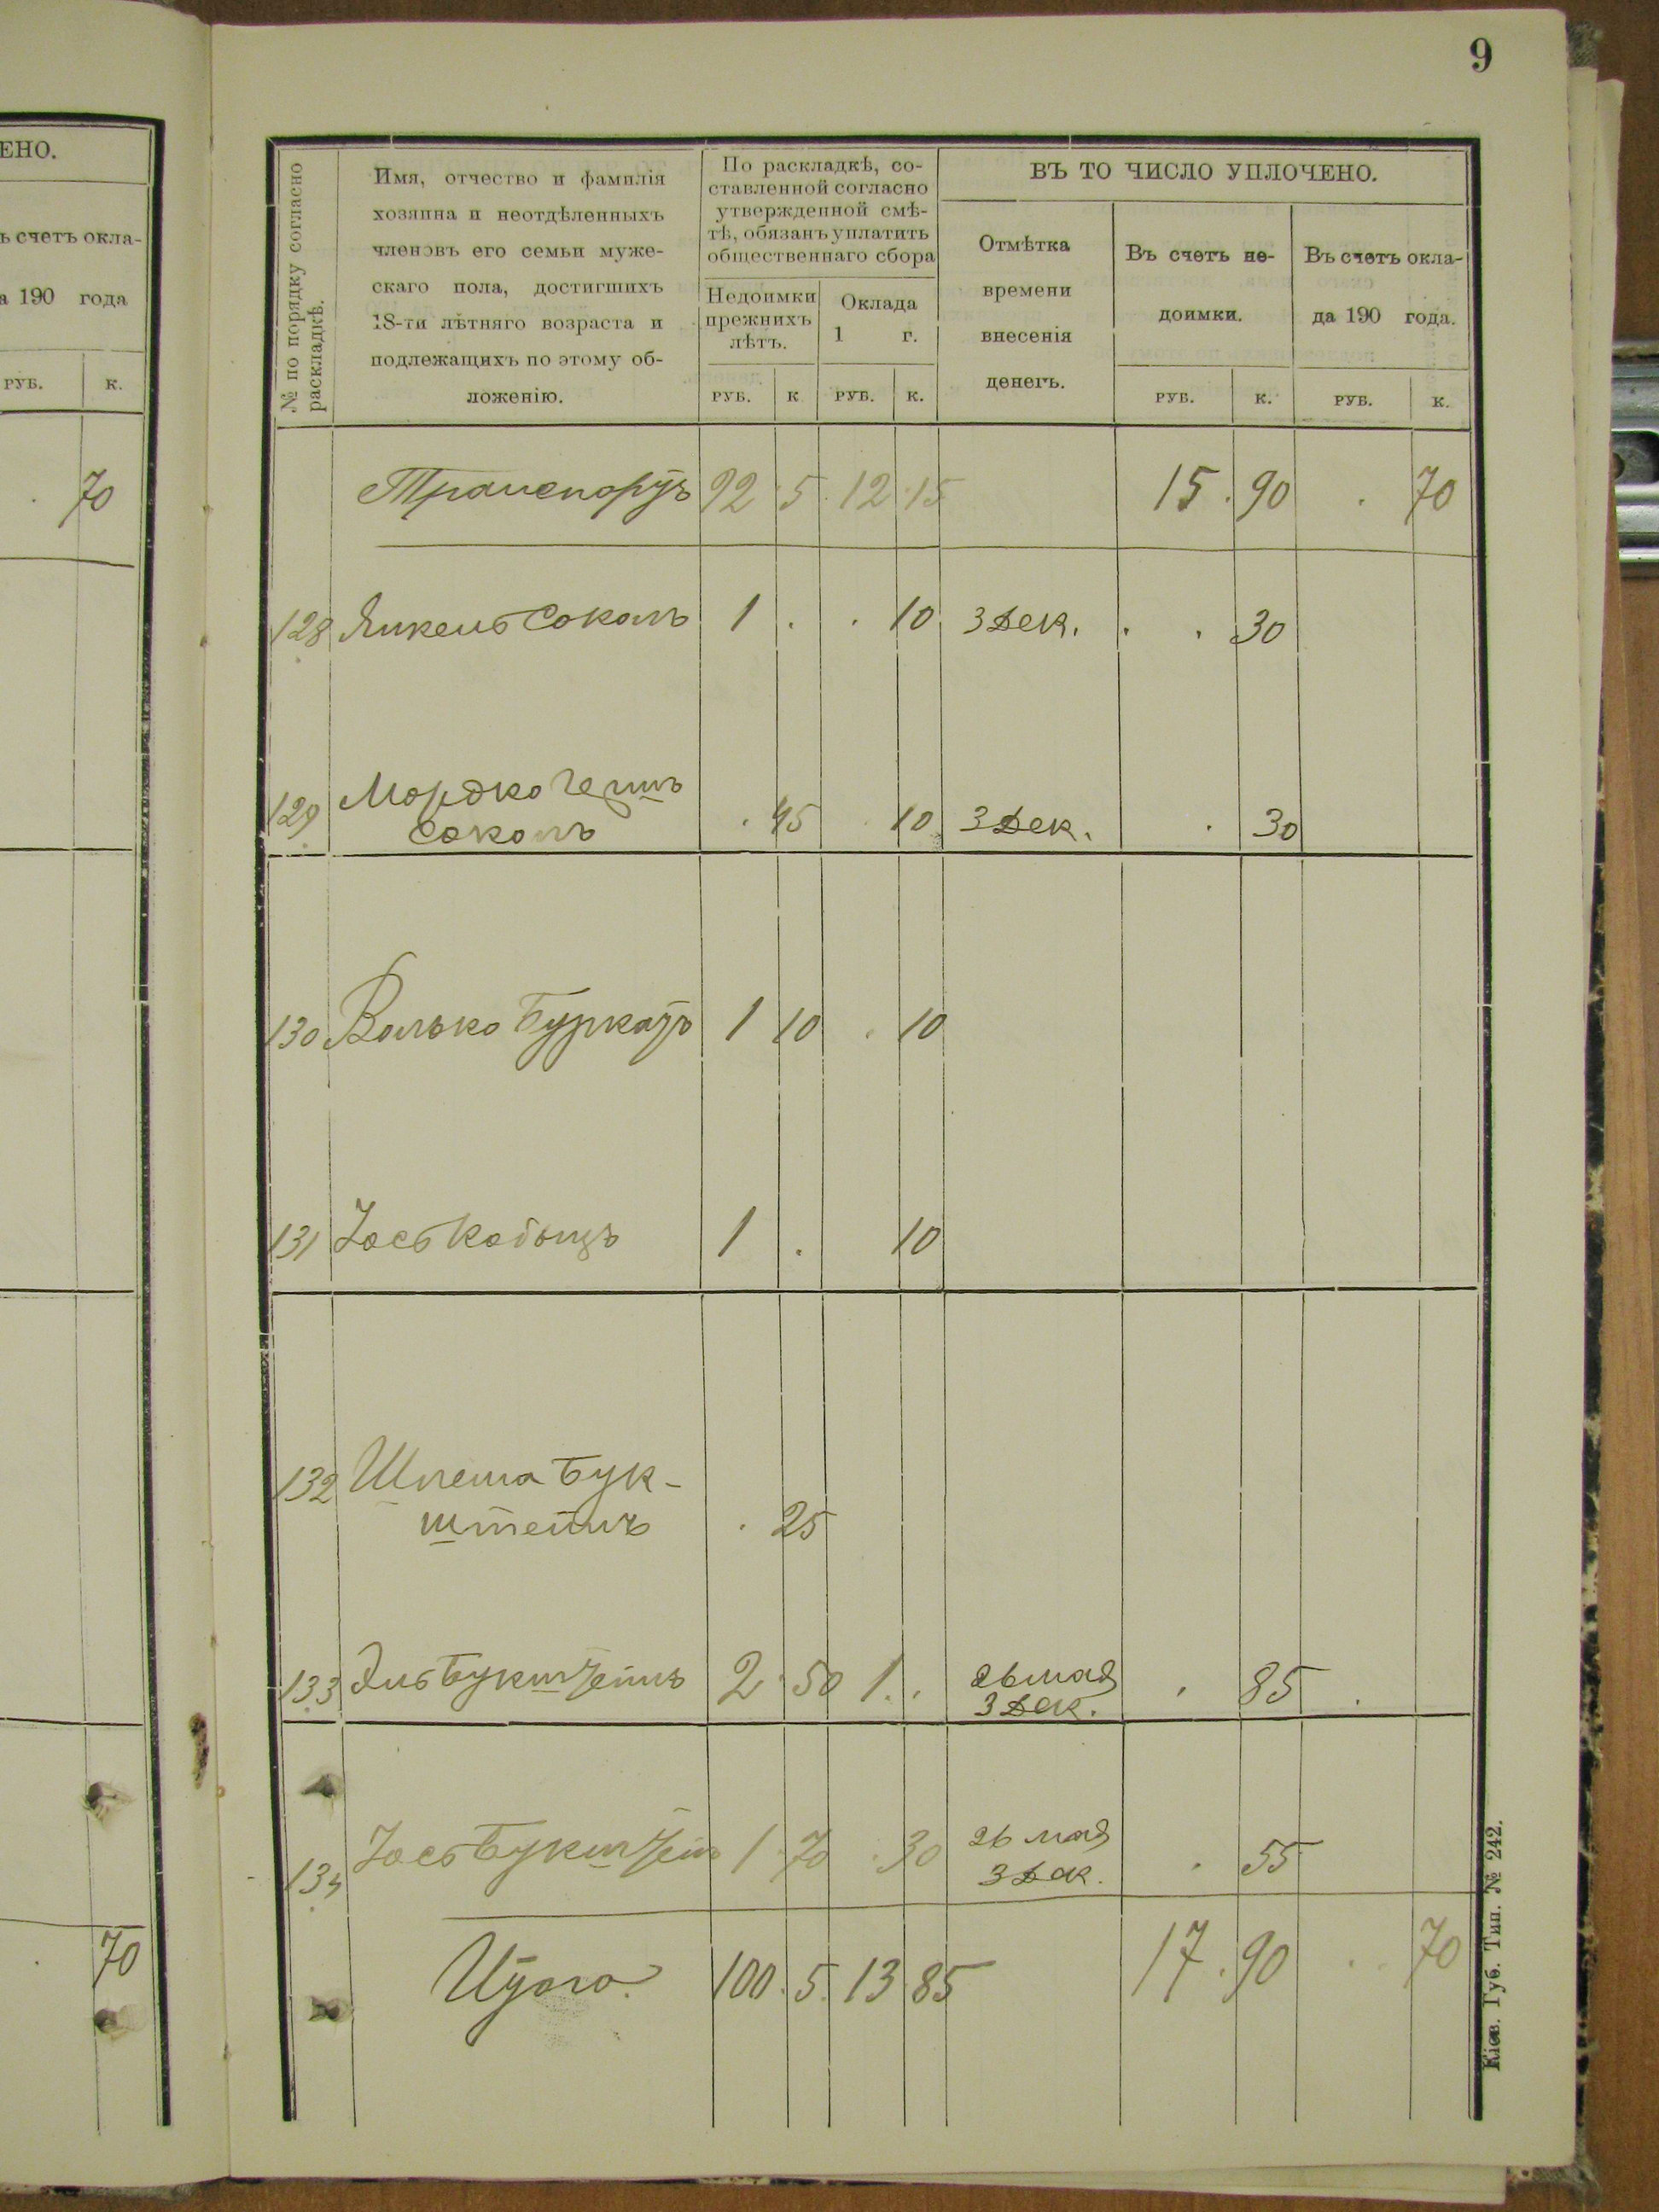 ЕНО.
ъ счетъ окла-
а 190 года
РУБ. К.
. 70
70
9
№ по порядку согласно
раскладкѣ.
Имя, отчество и фамилія
хозяина и неотдѣленныхъ
членовъ его семьи муже-
скаго пола, достигшихъ
18-ти лѣтняго возраста и
подлежащихъ по этому об-
ложенію.
По раскладкѣ, со-
ставленной согласно
утвержденной смѣ-
тѣ, обязанъ уплатить
общественнаго сбора
Недоимки
прежнихъ
лѣтъ.
Оклада
1 г.
РУБ. К РУБ. К.
ВЪ ТО ЧИСЛО УПЛОЧЕНО.
Отмѣтка
времени
внесенія
денегъ.
Въ счетъ не-
доимки.
Въ счетъ окла-
да 190 года.
РУБ. К. РУБ. К.
Транспортъ 92 . 5 . 12 . 15 15 . 90 . 70
128 Янкель Соколъ 1 . . 10 3 Дек. . . 30
129 Мордко Гершъ
Соколъ . 45 . 10 3 Дек. . 30
130 Волько Буркатъ 1 10 . 10
131 Іось 1 . 10
132 Шлема Бук-
штейнъ . 25
133 Эль Букштейнъ 2 . 50 1 . . 26 мая
3 Дек. . 85 .
134 Іось Букштейнъ 1 . 70 . 30 26 мая
3 Дек. . 55
Итого. 100 . 5 . 13 . 85 17 . 90 . . 70
Кіев. Губ. Тип. № 242.